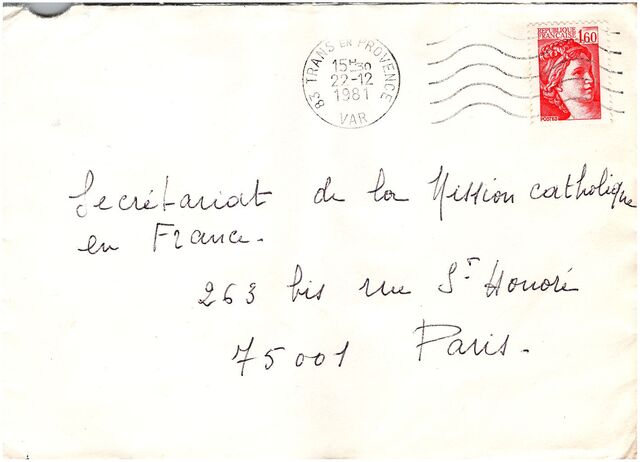 83 TRANS EN PROVENCE
15H30
22-12
1981
VAR
REPUBLIQUE
FRANÇAISE 1,60
POSTES
Secrétariat de la Mission catholique
en France.
263 bis rue St Honoré
75001 Paris.